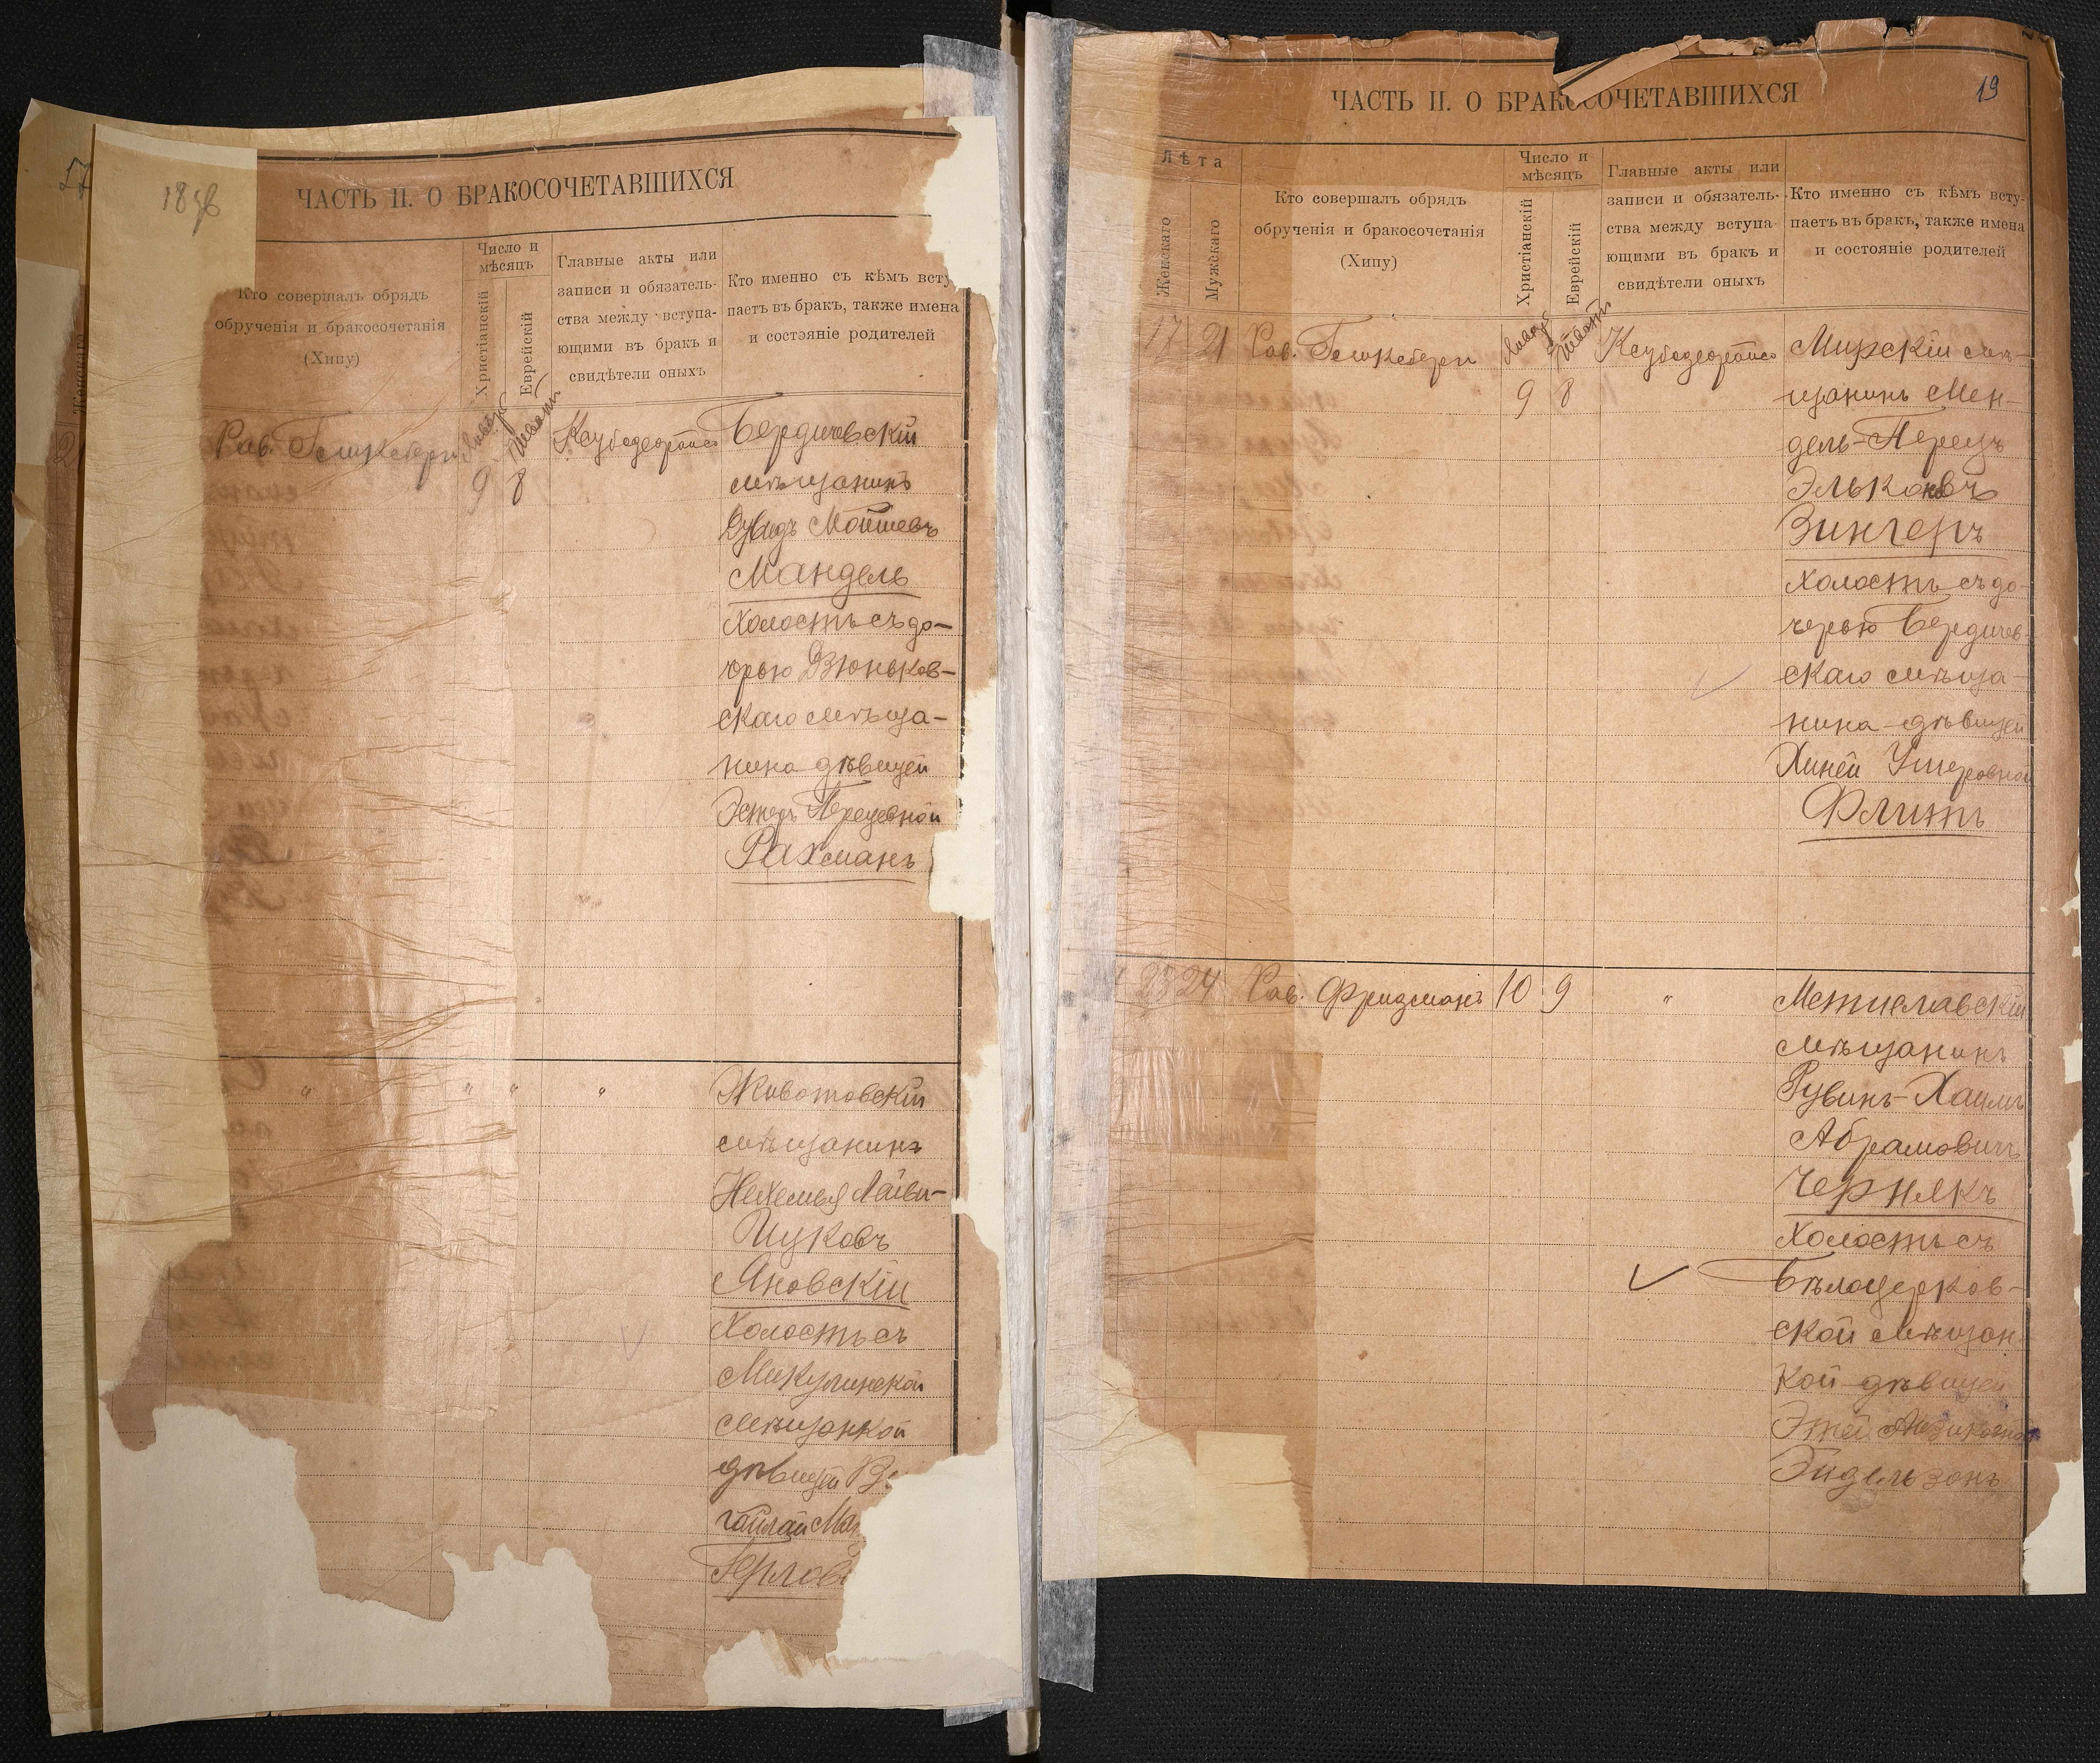 1896
ЧАСТЬ II. О БРАКОСОЧЕТАВШИХСЯ
Кто совершалъ обрядъ
обрученія и бракосочетанія
(Хипу)
Число и
мѣсяцъ
Христіанскій
Еврейскій
Главные акты или
записи и обязатель-
ства между вступа-
ющими въ бракъ и
свидѣтели оныхъ
Кто именно съ кѣмъ всту
паетъ въ бракъ, также имена
и состэяніе родителей
Рав.
9
8
Бердичевскій
мѣщанинъ
Дувидъ Мойшевъ
Мандель
холостъ съ до-
чрью Дзюньков-
скаго мѣща-
нина дѣвицей
Эстеръ Перецевной
Рахманъ
" " " "
Животовскій
мѣщанинъ
Нехемья Лейви-
Ицковъ
Яновскій
холостъ съ
Микулинской
мѣщанкой
дѣвицей
Герлов
19
ЧАСТЬ II. О БРАКОСОЧЕТАВШИХСЯ
Лѣта
Женскаго
Мужскаго
Кто совершалъ обрядъ
обрученія и бракосочетанія
(Хипу)
Число и
мѣсяцъ
Христіанскій
Еврейскій
Главные акты или
записи и обязатель-
ства между вступа-
ющими въ бракъ и
свидѣтели оныхъ
Кто именно съ кѣмъ всту-
паетъ въ бракъ, также имена
и состояніе родителей
17 21 Рав.
9 8
Мирскій мѣ-
щанинъ Мен-
дель-Перецъ
Эльконовъ
Зингеръ
холостъ съ до-
черью Бердичев-
скаго мѣща-
нина дѣвицей
Хиней Ушеровной
Флитъ
23 24 Рав. Фридманъ 10 9 "
Мстиславскій
мѣщанинъ
Рувинъ-Хаимъ
Абрамовичъ
Чернякъ
холостъ съ
Бѣлоцерков-
ской мѣщан-
кой дѣвицей
Этей
Эйдельзонъ